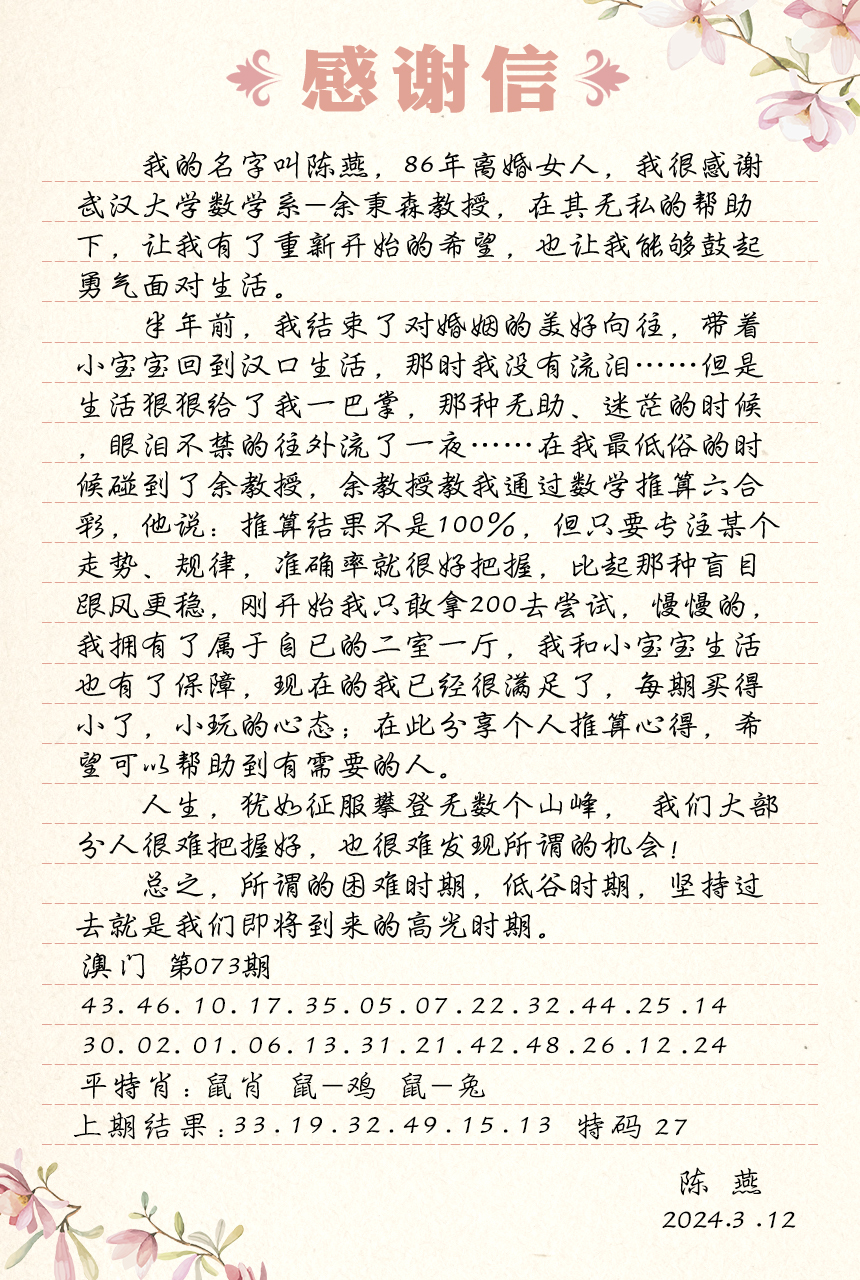 感谢信
我的名字叫陈燕，86年离婚女人，我很感谢
武汉大学数学系—余秉森教授，在其无私的帮助
下，让我有了重新开始的希望，也让我能够鼓起
勇气面对生活。
半年前，我结束了对婚姻的美好向往，带着
小宝宝回到汉口生活，那时我没有流泪……但是
生活狠狠给了我一巴掌，那种无助、迷茫的时候
，眼泪不禁的往外流了一夜……在我最低俗的时
候碰到了余教授，余教授教我通过数学推算六合
彩，他说：推算结果不是100%，但只要专注某个
走势、规律，准确率就很好把握，比起那种盲目
跟风更稳，刚开始我只敢拿200去尝试，慢慢的，
我拥有了属于自已的二室一厅，我和小宝宝生活
也有了保障，现在的我已经很满足了，每期买得
小了，小玩的心态；在此分享个人推算心得，希
望可以帮助到有需要的人。
人生，犹如征服攀登无数个山峰， 我们大部
分人很难把握好，也很难发现所谓的机会！
总之，所谓的困难时期，低谷时期，坚持过
去就是我们即将到来的高光时期。
澳门 第073期
43.46.10.17.35.05.07.22.32.44.25.14
30.02.01.06.13.31.21.42.48.26.12.24
平特肖：鼠肖 鼠—鸡 鼠—兔
上期结果：33.19.32.49.15.13 特码 27
陈 燕
2024.3.12